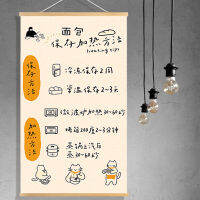 面包
保存加热方法
heating tips
保存方法
冷冻保存2周
常温保存2-3天
加热方法
微波炉加热30-60秒
烤箱200度2-3分钟
蒸锅上汽后
蒸30-60秒